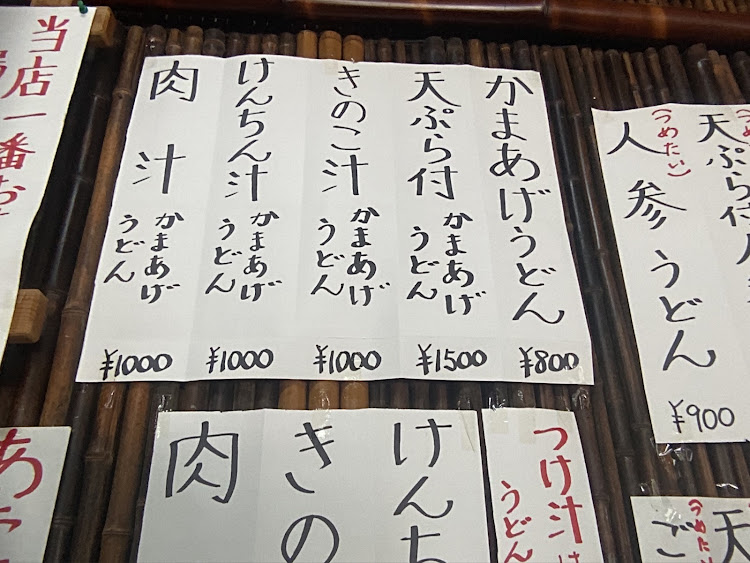 かまあげうどん
¥800
天ぷら付
かまあげ
うどん
¥1500
きのこ汁
かまあげ
うどん
¥1000
けんちん汁
かまあげ
うどん
¥1000
肉汁
かまあげ
うどん
¥1000
(つめたい)
人参うどん
¥900
天ぷら付
当店一番お
けんち
きの
肉
つけ汁は
うどん
(つめた
天
ご
あ